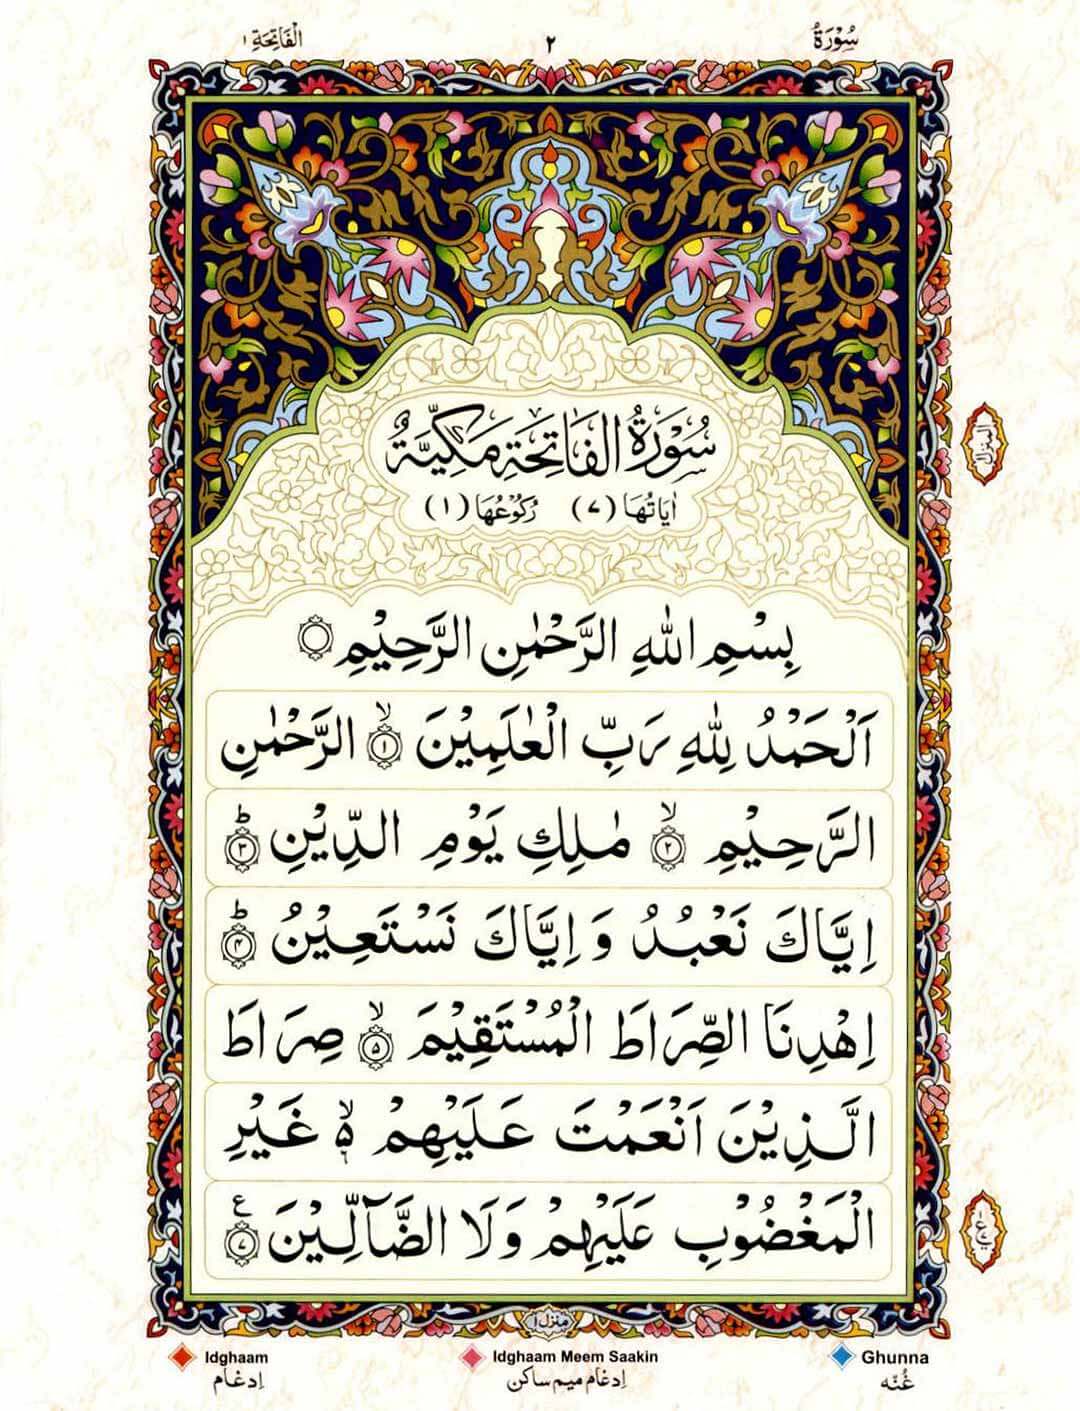 سُوْرَةُ ٢ الْفَاتِحَةِ ١
سُوْرَةُ الْفَاتِحَةِ مَكِّيَّةٌ
اٰيَاتُهَا (٧) رُكُوْعُهَا (١)
بِسْمِ اللّٰهِ الرَّحْمٰنِ الرَّحِيْمِ ۝
اَلْحَمْدُ لِلّٰهِ رَبِّ الْعٰلَمِيْنَ ۙ﴿١﴾ الرَّحْمٰنِ
المنزل
الرَّحِيْمِ ۙ﴿٢﴾ مٰلِكِ يَوْمِ الدِّيْنِ ؕ﴿٣﴾
اِيَّاكَ نَعْبُدُ وَ اِيَّاكَ نَسْتَعِيْنُ ؕ﴿۴﴾
اِهْدِنَا الصِّرَاطَ الْمُسْتَقِيْمَ ۙ﴿۵﴾ صِرَاطَ
الَّذِيْنَ اَنْعَمْتَ عَلَيْهِمْ ۙ۬۵ غَيْرِ
الْمَغْضُوْبِ عَلَيْهِمْ وَلَا الضَّآلِّيْنَ ﴿٧﴾ ع
منزل ١
Idghaam Idghaam Meem Saakin Ghunna
اِدغَام اِدغَام میم ساکن غُنّه